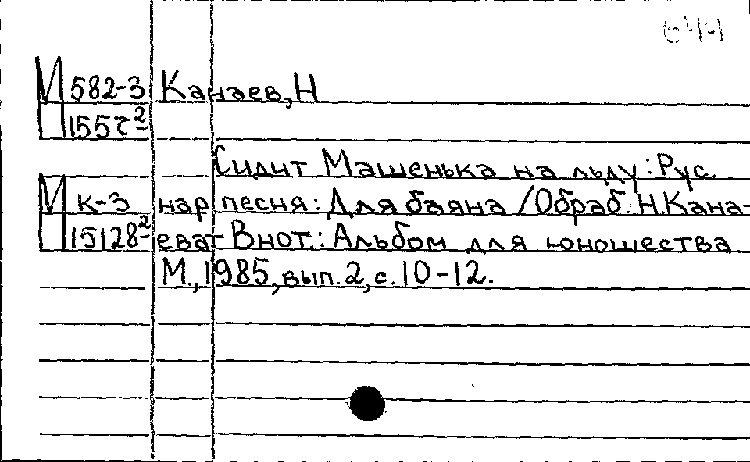 М 582-3 Канаев, Н
П 155
Сидит Машенька на льду: Рус.
М к-3 нар песня: Для баяна / Обраб. Н. Кана-
П 15128-2 ева - В нот.: Альбом для юношества
М., 1985, вып. 2, с. 10-12.